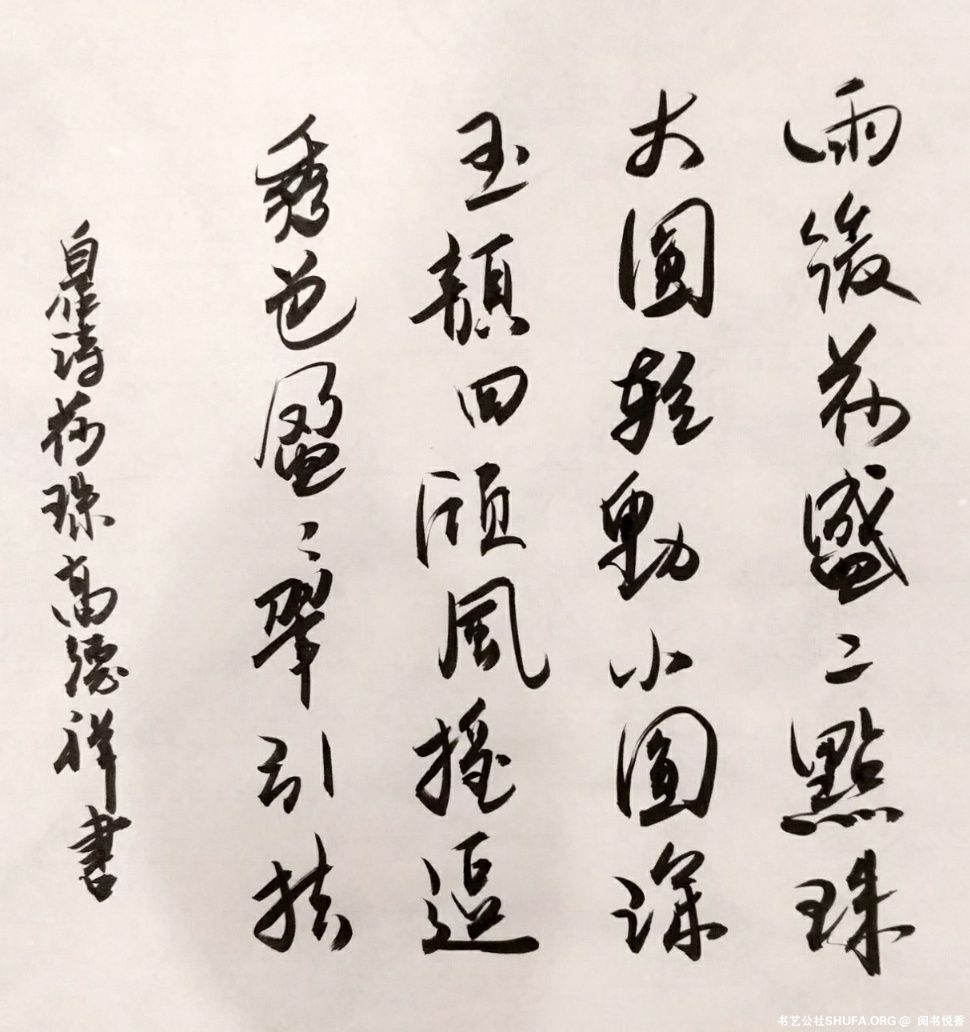 雨微荷盛二點珠
大圓輕動小圓深
玉顏回顧風搖逗
秀色盈〻翠引扶
自作詩荷珠高德祥書
书艺公社SHUFA.ORG @ 阅书悦香